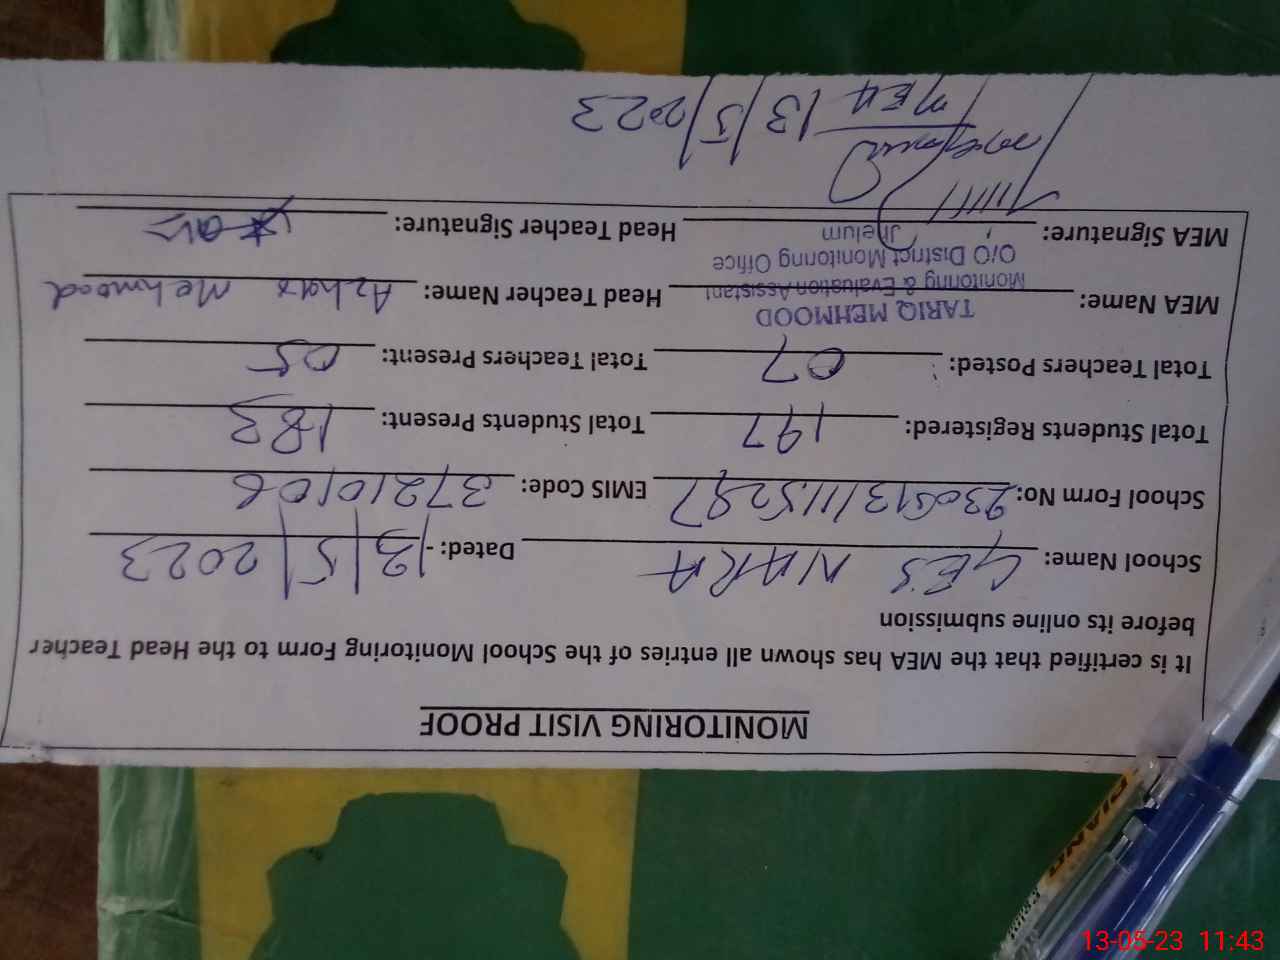 MONITORING VISIT PROOF
It is certified that the MEA has shown all entries of the School Monitoring Form to the Head Teacher
before its online submission
School Name: GES NARA Dated: 13/5/2023
School Form No: 230513111115297 EMIS Code: 37210106
Total Students Registered: 197 Total Students Present: 183
Total Teachers Posted: 07 Total Teachers Present: 05
TARIQ MEHMOOD
MEA Name: Monitoring & Evaluation Assistant Head Teacher Name: Azhar Mehmood
O/O District Monitoring Office
Jhelum
MEA Signature: Head Teacher Signature:
MEA 13/5/2023
PIANO
13-05-23 11:43